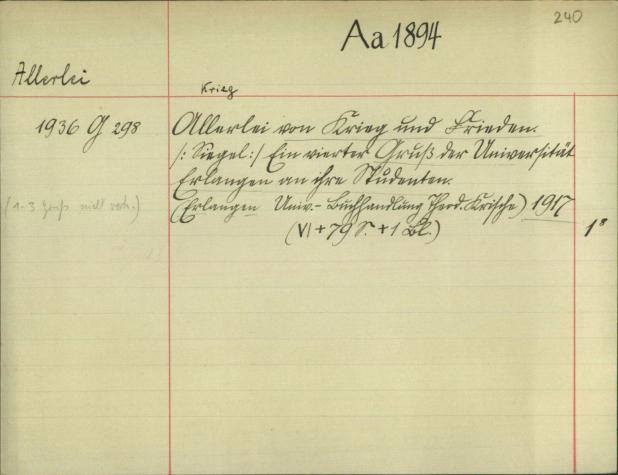 240
Aa 1894
Allerlei
Krieg
1936 G 298
Allerlei von Krieg und Frieden.
/: Siegel :/ Ein vierter Gruß der Universität
Erlangen an ihre Studenten.
(1-3 Gruß nicht vorh.)
(Erlangen Univ.- Buchhandlung Theod. Krische) 1917
(VI + 79 S. + 1 Bl.)
1°